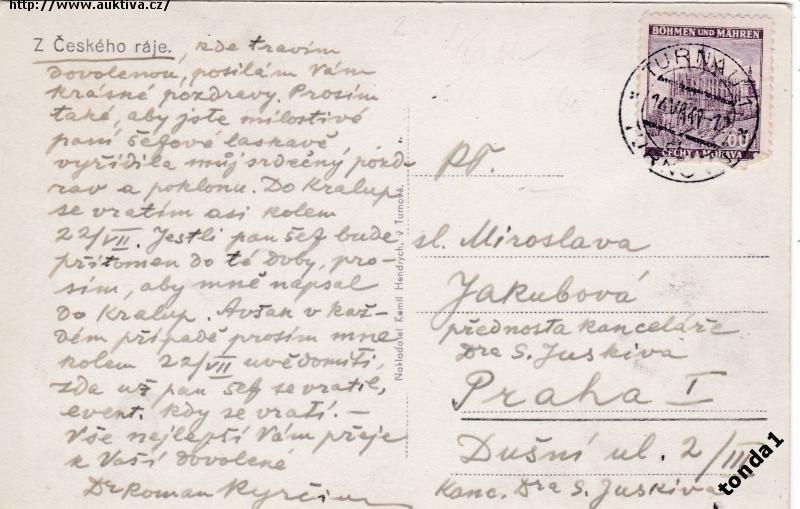 http://www.auktiva.cz/
Z Českého ráje., kde trávím
dovolenou, posílám Vám
krásné pozdravy. Prosím
také, aby jste milostivé
paní šéfové laskavě
vyřídila můj srdečný pozd-
rav a poklonu. Do Kralup
se vrátím asi kolem
22/VII. Jestli pan šéf bude
přítomen do té doby, pro-
sím, aby mně napsal
do Kralup. Avšak v kaž-
dém případě prosím mne
kolem 22/VII uvědomiti,
zda už pan šéf se vrátil,
event. kdy se vrátí. –
Vše nejlepší Vám přeje
k Vaší dovolené
Dr Roman
Nakladatel Kamil Hendrych, v Turnově.
BÖHMEN UND MÄHREN
60
ČECHY A MORAVA
TURNAU 1
TURNOV 1
PT.
sl. Miroslava
Jakubová
přednosta kanceláře
Dra S. Juskiva
Praha I
Dušní ul. 2/III
Kanc. Dra S. Juskiva
tonda1